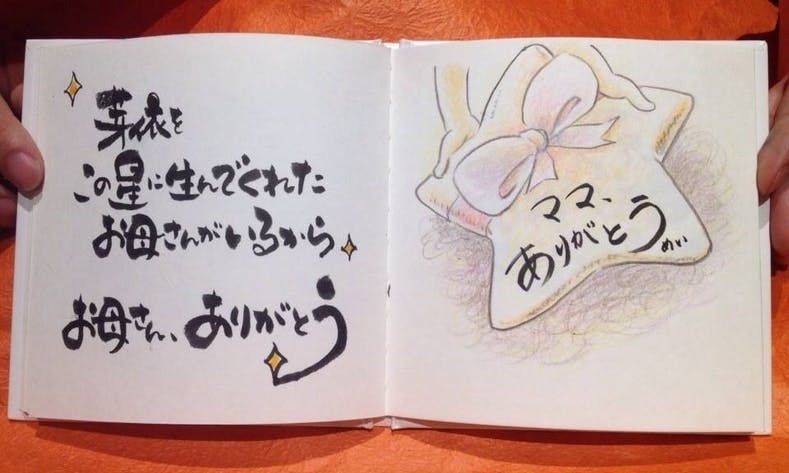 芽依を
この星に生んでくれた
お母さんがいるから
お母さん、ありがとう
ママ、
ありがとう
めい